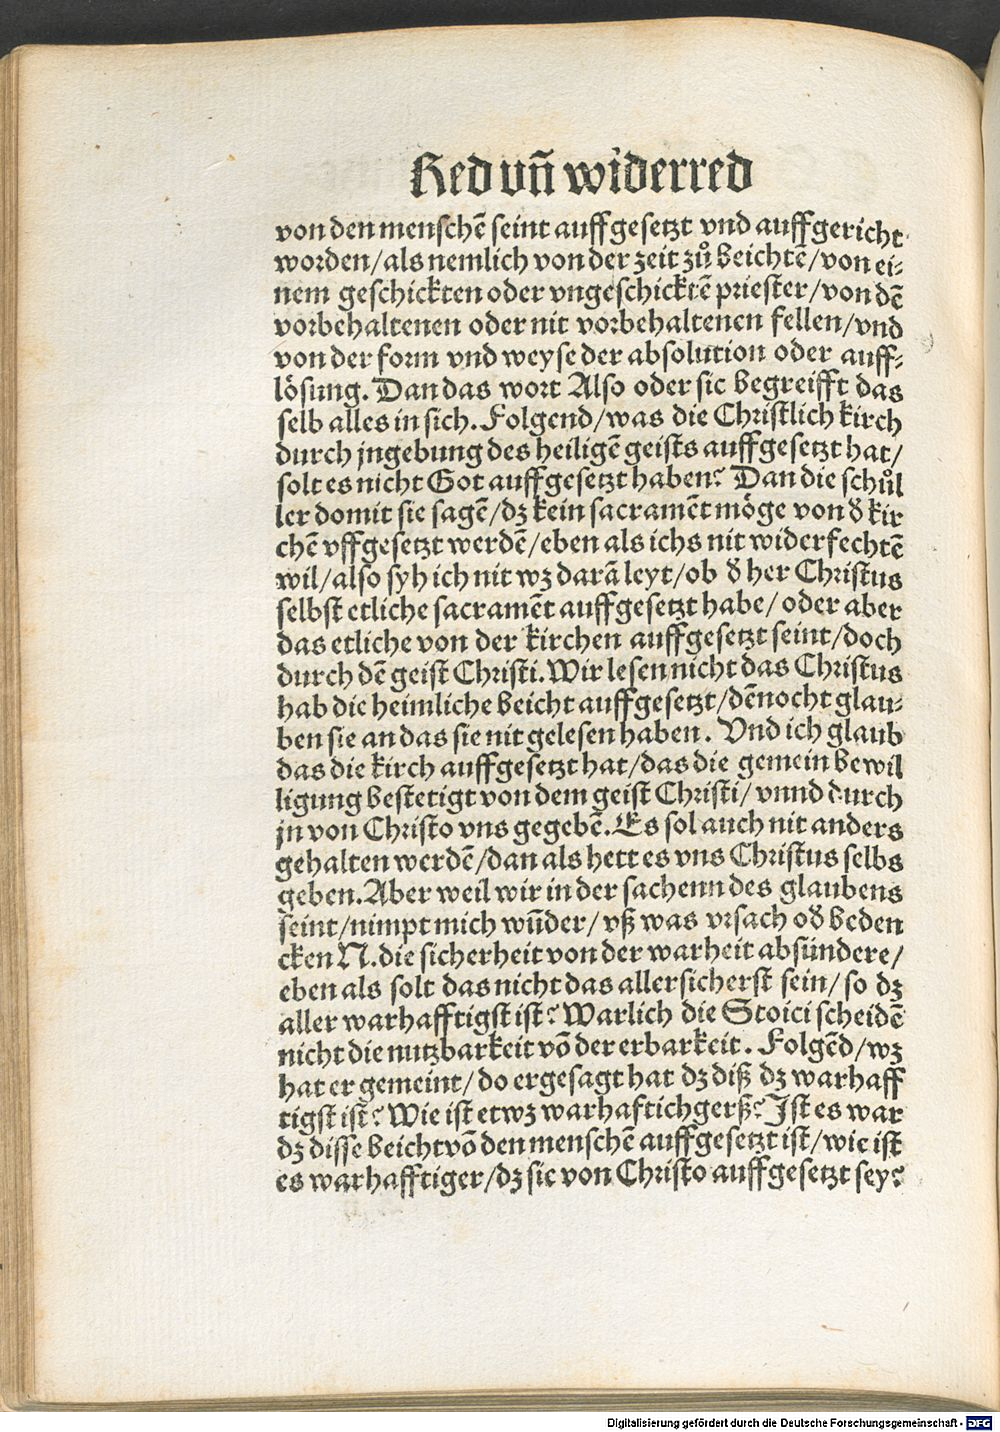 Red vñ widerred
von den menschē seint auffgesetzt vnd auffgericht
worden/als nemlich von der zeit zů beichtē/von ei⸗
nem geschickten oder vngeschicktē priester/von dē
vorbehaltenen oder nit vorbehaltenen fellen/vnd
von der form vnd weyse der absolution oder auff⸗
lösung. Dan das wort Also oder sic begreifft das
selb alles in sich. Folgend/was die Christlich kirch
durch jngebung des heiligē geists auffgesetzt hat/
solt es nicht Got auffgesetzt haben? Dan die schůl
ler domit sie sagē/dz kein sacramēt möge von d̄ kir
chē vffgesetzt werdē/eben als ichs nit widerfechtē
wil/also syh ich nit wz darā leyt/ob d̄ her Christus
selbst etliche sacramēt auffgesetzt habe/oder aber
das etliche von der kirchen auffgesetzt seint/doch
durch dē geist Christi. Wir lesen nicht das Christus
hab die heimliche beicht auffgesetzt/dēnocht glau⸗
ben sie an das sie nit gelesen haben. Vnd ich glaub
das die kirch auffgesetzt hat/das die gemein bewil
ligung bestetigt von dem geist Christi/vnnd durch
jn von Christo vns gegebē. Es sol auch nit anders
gehalten werdē/dan als hett es vns Christus selbs
geben. Aber weil wir in der sachenn des glaubens
seint/nimpt mich wūder/vß was vrsach od̄ beden
cken N. die sicherheit von der warheit absündere/
eben als solt das nicht das allersicherst sein/so dz
aller warhafftigst ist? Warlich die Stoici scheidē
nicht die nutzbarkeit vō der erbarkeit. Folgēd/wz
hat er gemeint/do er gesagt hat dz diß dz warhaff
tigst ist? Wie ist etwz warhaftichgerß? Ist es war
dz disse beicht vō den menschē auffgesetzt ist/wie ist
es warhafftiger/dz sie von Christo auffgesetzt sey?
Digitalisierung gefördert durch die Deutsche Forschungsgemeinschaft - DFG